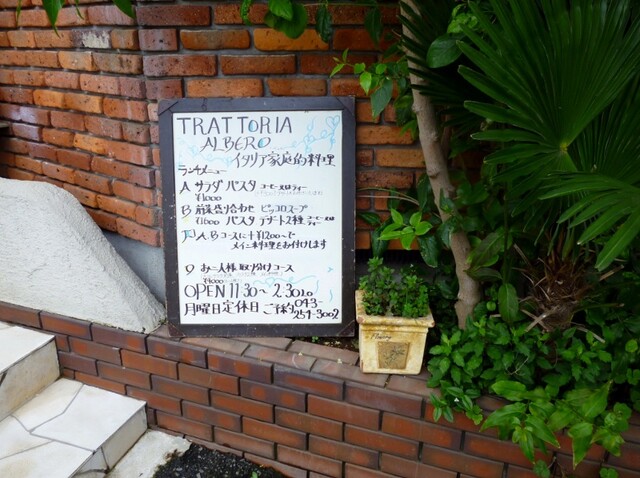 TRATTORIA
ALBERO
イタリア家庭的料理
ランチメニュー
A サラダ パスタ コーヒー又はティー
¥1000
B 前菜盛り合わせ ピッコロスープ
¥1600 パスタ デザート2種 コーヒー又はティー
A.Bコースに+¥1200〜で
メイン料理をお付けします
お二人様取り分けコース
OPEN 11:30〜2:30 L.O
月曜日定休日 ご予約 043-
251-3002